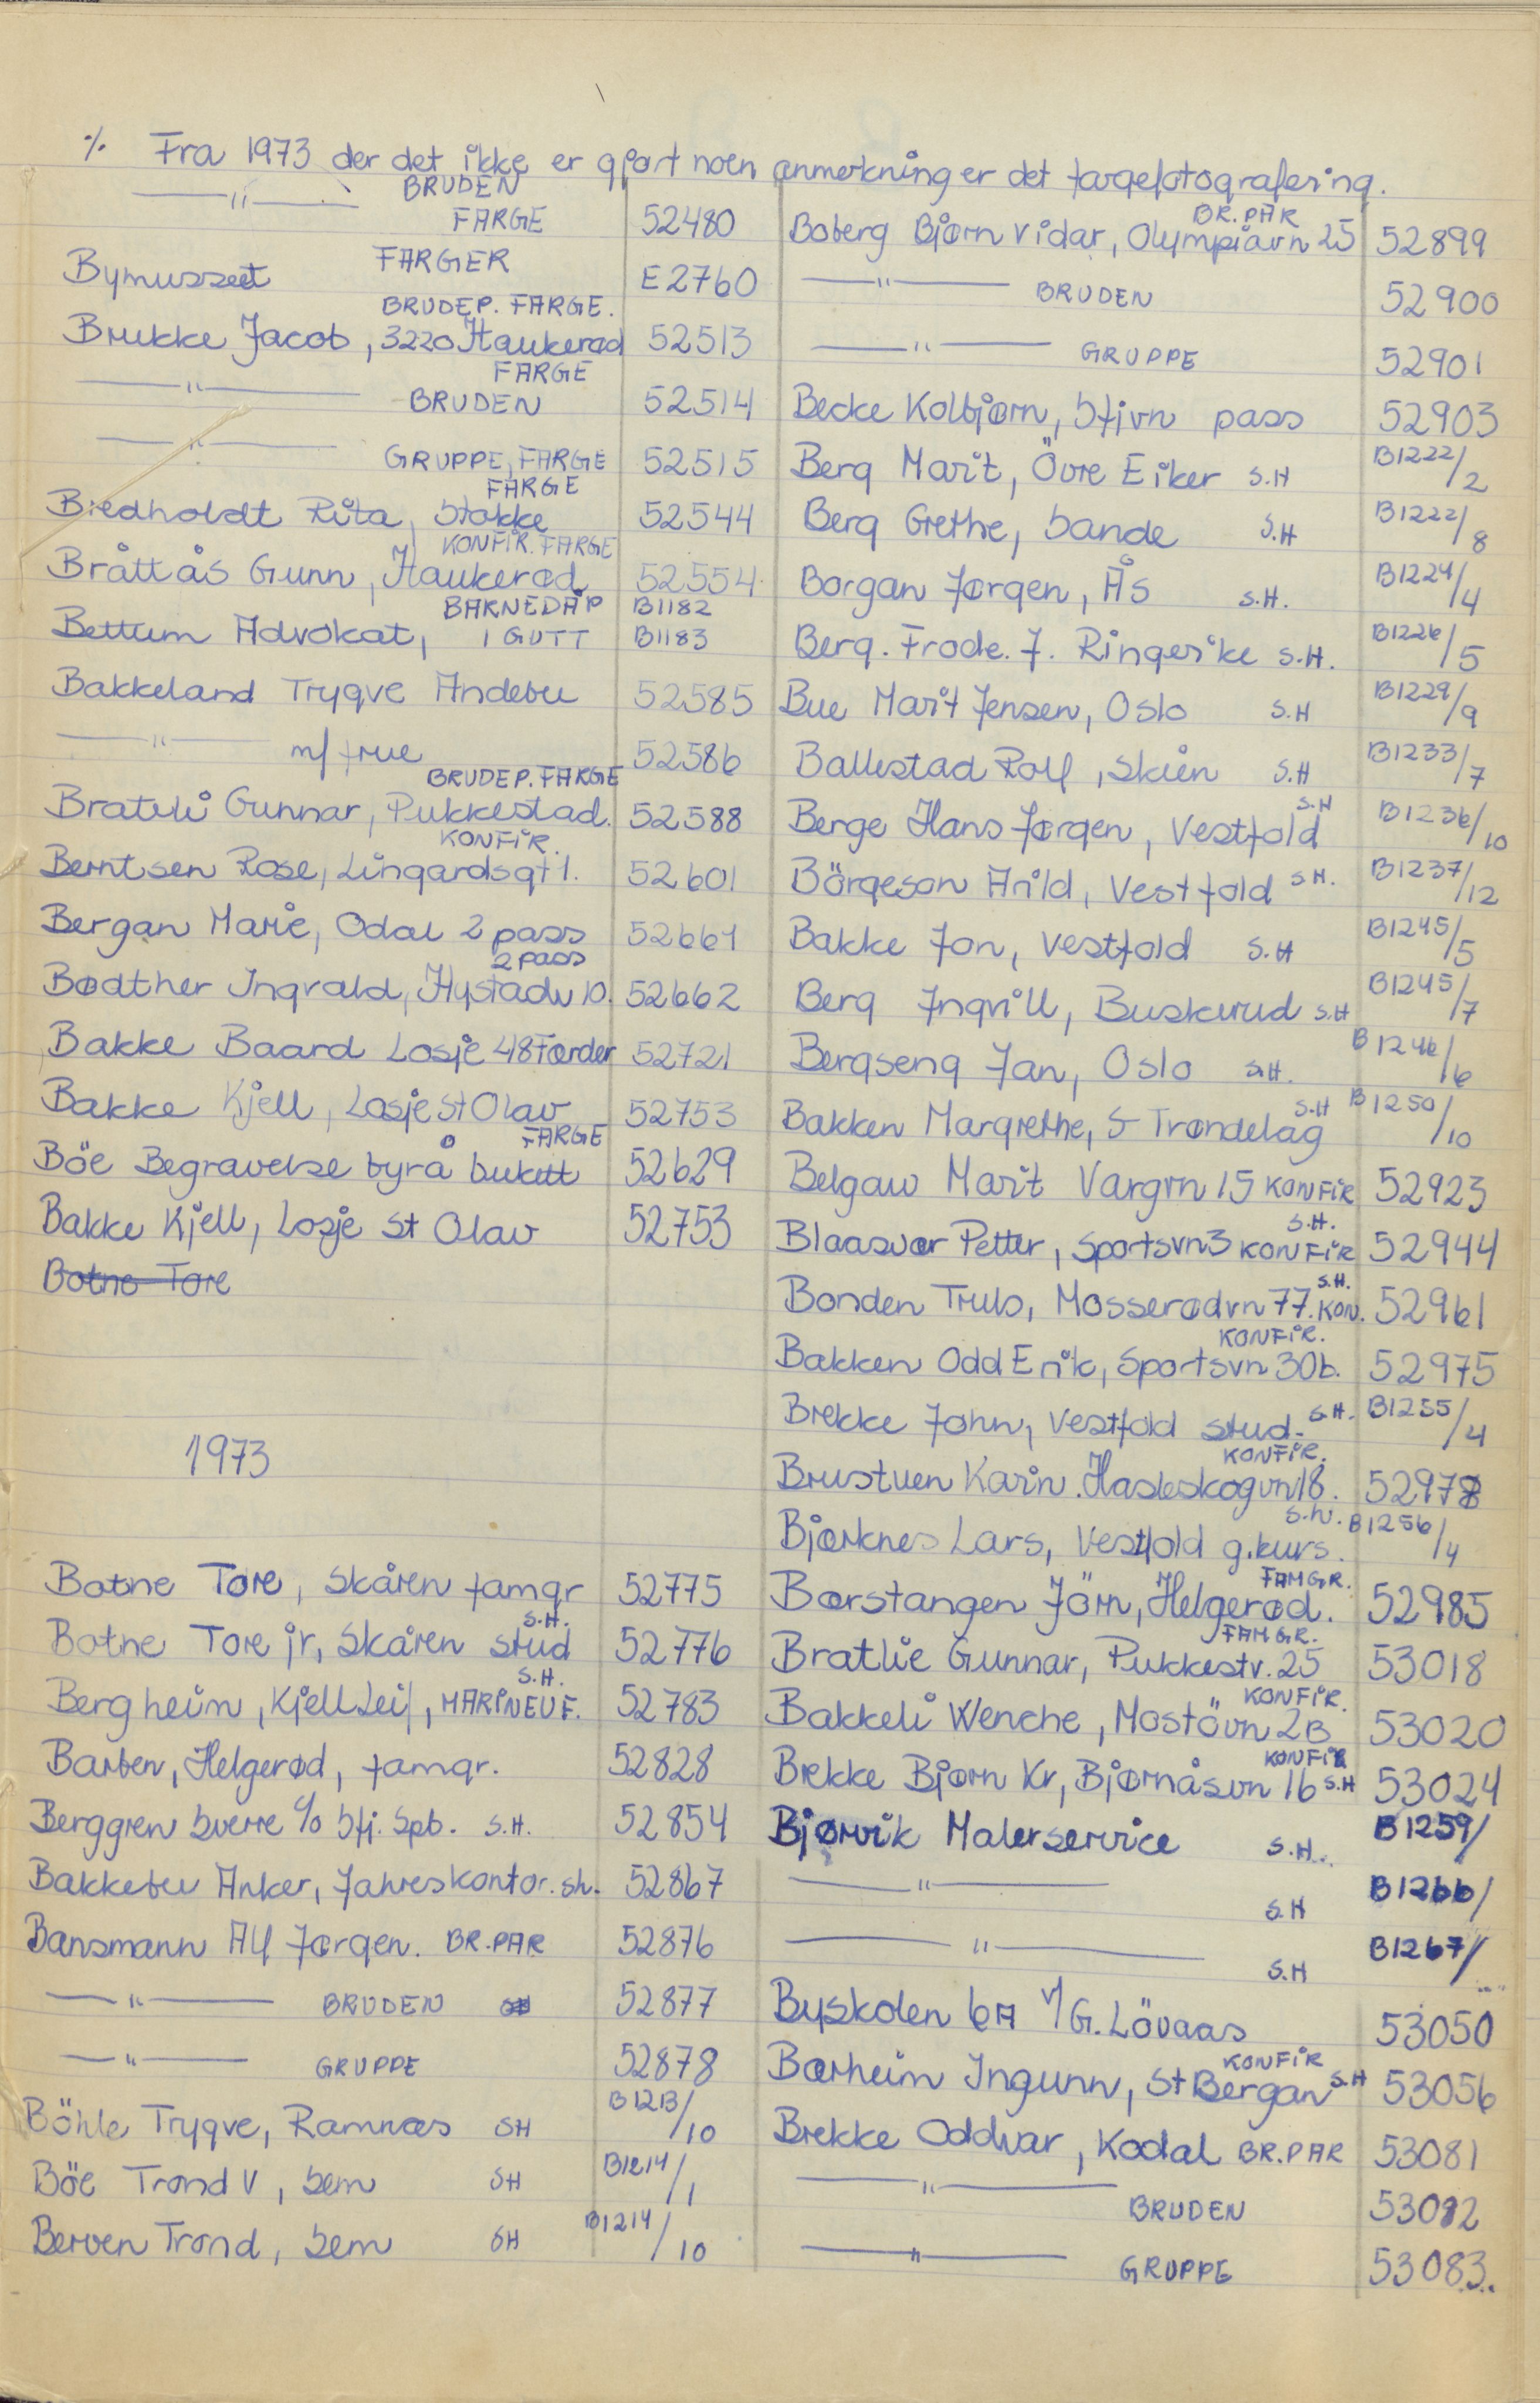 ·/. Fra 1973 der det ikke er gjort noen anmerkning er det fargefotografering.
—"— BRUDEN FARGE 52480
Bymuseet FARGER E2760
Brukke Jacob, 3220 Haukerød BRUDEP. FARGE. 52513
—"— FARGE BRUDEN 52514
—"— GRUPPE, FARGE 52515
Bredholdt Rita, Stokke FARGE 52544
Bråttås Gunn, Haukerød KONFIR. FARGE 52554
Bettum Advokat, BARNEDÅP 1 GUTT B1182 B1183
Bakkeland Trygve Andebu 52585
—"— m/ frue 52586
Brateli Gunnar, Pukkestad. BRUDEP. FARGE 52588
Berntsen Rose, Lingardsgt 1. KONFIR. 52601
Bergan Marie, Odal 2 pass 52661
Bødther Ingvald, Hystadv 10. 2 pass 52662
Bakke Baard Losje 48 Færder 52721
Bakke Kjell, Losje St Olav 52753
Böe Begravelse byrå bukett FARGE 52629
Bakke Kjell, Losje St Olav 52753
Botne Tore
1973
Botne Tore, Skåren famgr 52775
Botne Tore jr, Skåren stud S.H. 52776
Bergheim, Kjell Leif, MARINEUF. S.H. 52783
Barben, Helgerød, famgr. 52828
Berggren Sverre c/o Sfj. Spb. S.H. 52854
Bakkebu Anker, Jahres kontor. sh. 52867
Bansmann Alf Jørgen. BR.PAR 52876
—"— BRUDEN 52877
—"— GRUPPE 52878
Böhle Trygve, Ramnes SH B1213/10
Böe Trond V, Sem SH B1214/1
Berven Trond, Sem SH B1214/10
Boberg Bjørn Vidar, Olympiavn 25 BR.PAR 52899
—"— BRUDEN 52900
—"— GRUPPE 52901
Becke Kolbjørn, Sfjvn pass 52903
Berg Marit, Övre Eiker S.H B1222/2
Berg Grethe, Sande S.H B1222/8
Borgan Jørgen, Ås S.H. B1224/4
Berg. Frode. J. Ringerike S.H. B1226/5
Bue Marit Jensen, Oslo S.H B1229/9
Ballestad Rolf, Skien S.H B1233/7
Berge Hans Jørgen, Vestfold S.H B1236/10
Börgeson Arild, Vestfold S.H. B1237/12
Bakke Jon, Vestfold S.H B1245/5
Berg Ingvill, Buskerud S.H B1245/7
Bergseng Jan, Oslo S.H. B1246/6
Bakken Margrethe, S Trøndelag S.H B1250/10
Belgau Marit Vargvn 15 KONFIR 52923
Blaasvær Petter, Sportsvn 3 KONFIR S.H. 52944
Bonden Truls, Mosserødvn 77. KON. S.H. 52961
Bakken Odd Erik, Sportsvn 30b. KONFIR. 52975
Brekke John, Vestfold stud. S.H. B1255/4
Brustuen Karin. Hasleskogvn 18. KONFIR. 52978
Bjørknes Lars, Vestfold g.kurs. S.h. B1256/4
Børstangen Jörn, Helgerød. FAMGR. 52985
Bratlie Gunnar, Pukkestv. 25 FAMGR. 53018
Bakkeli Wenche, Mostövn 2B KONFIR. 53020
Brekke Bjørn Kr, Bjørnåsvn 16 KONFIR S.H 53024
Bjørvik Malerservice S.H. B1259/
—"— S.H B1266/
—"— S.H B1267/
Byskolen 6A v/ G. Lövaas 53050
Bærheim Ingunn, St Bergan KONFIR S.H 53056
Brekke Oddvar, Kodal BR.PAR 53081
—"— BRUDEN 53082
—"— GRUPPE 53083